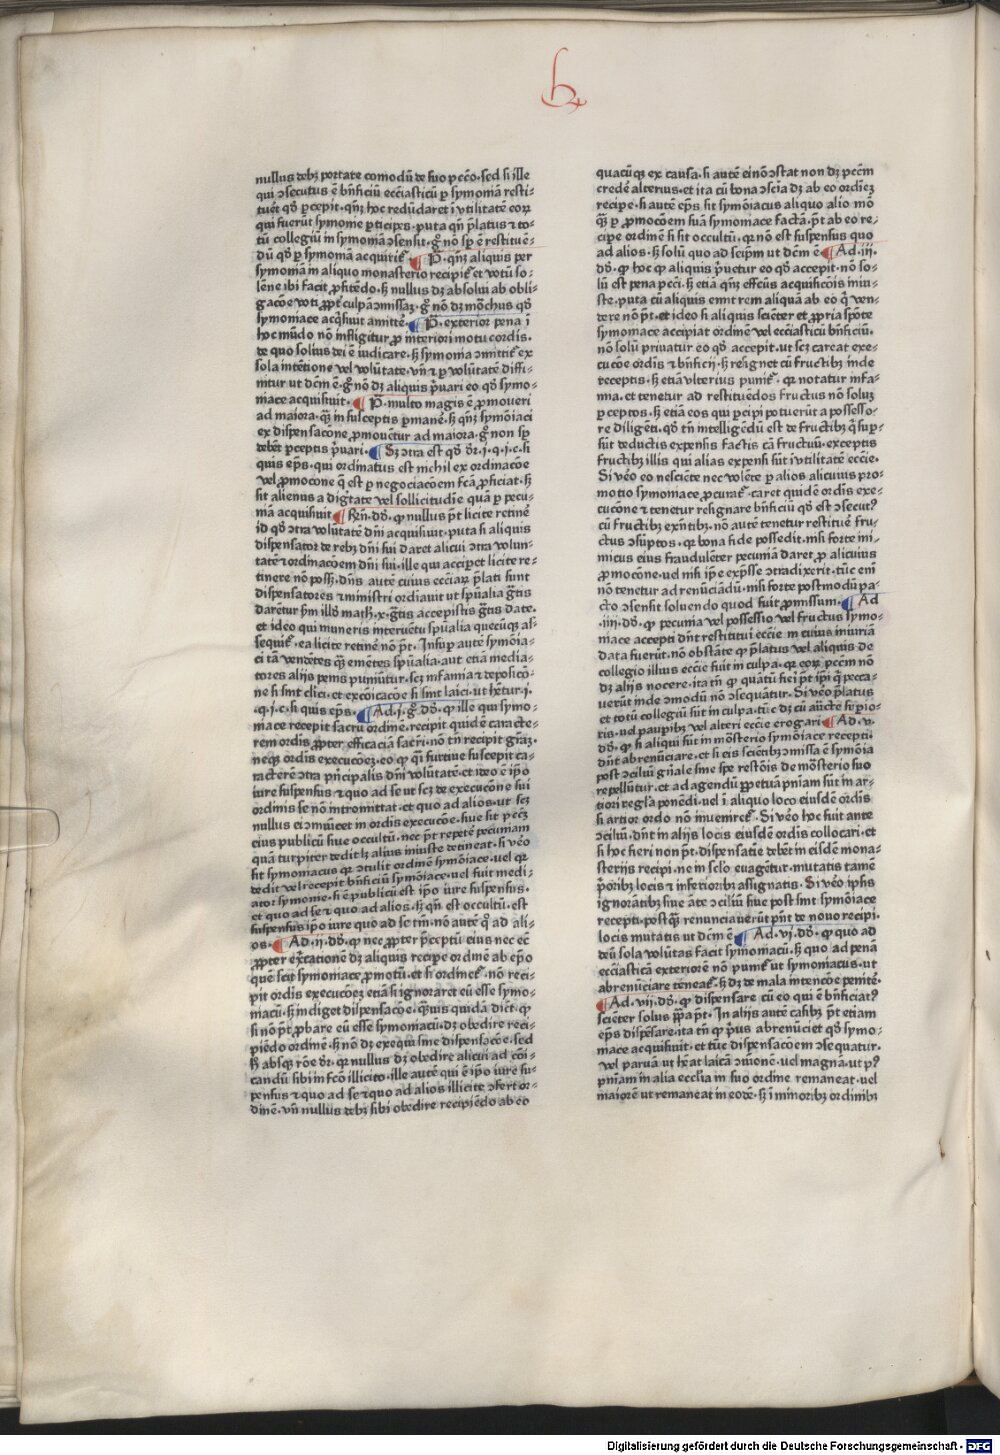 b
nullus debꝫ portare comodū de suo pctō·sed si ille
qui ↄsecutus ē bn̄ficiū eccl̄iasticū ꝑ symoniā resti-
tuēt qd̓ ꝑcepit·qn̄qꝫ hoc redūdaret ī vtilitatē eoꝝ
qui fuerūt symonie ꝑticipes·puta qn̄ p̄latus ⁊ to-
tū collegiū in symoniā ↄsensit·gͦ nō sp̄ ē restituē-
dū qd̓ ꝑ symoniā acqͥritᷣ ¶ P̄·qn̄qꝫ aliquis per
symoniā in aliquo monasterio recipitᷣ et votū so-
lēne ibi facit ꝓfitēdo·sꝫ nullus dꝫ absolui ab obli-
gac̄oe voti ꝓpt̓ culpā ↄmissaꝫ·gͦ nō dꝫ mōchus qd̓
symoniace acqͥsiuit amittē·¶ P̄·exterior pena ī
hoc mūdo nō infligitur ꝓ interiori motu cordis·
de quo solius dei ē iudicare·sꝫ symonia ↄmittitᷣ ex
sola intētione vel volūtate·vn̄ ⁊ ꝑ volūtatē diffi-
nitur ut dcm̄ ē·gͦ nō dꝫ aliquis p̄uari eo qd̓ symo-
niace acquisiuit·¶ P̄·multo magis ē ꝓmoueri
ad maiora·qͣꝫ in susceptis ꝑmanē·sꝫ qn̄qꝫ symōiaci
ex dispensacōne ꝓmouētur ad maiora·gͦ non sp̄
debēt ꝑceptis p̄uari·¶ Sꝫ ↄtra est qd̓ dr̄·j·q·j·c·si
quis ep̄s·qui ordinatus est nichil ex ordinacōe
vel ꝓmocōne q̄ est ꝑ negociacōem fcā ꝓficiat·sꝫ
sit alienus a dig̓tate vel sollicitudīe quā ꝑ pecu-
niā acquisiuit ¶ Rn̄·dd̓·ꝙ nullus pt̄ licite retinē
id qd̓ ↄtra volūtatē dn̄i acquisiuit·puta si aliquis
dispensator de rebꝫ dn̄i sui daret alicui ↄtra volun-
tatē ⁊ ordinacōem dn̄i sui·ille qui acciꝑet licite re-
tinere nō posꝫ·dn̄s autē cuius eccl̄iaꝝ p̄lati sunt
dispensatores ⁊ ministri ordiauit ut spūalia gͣtis
darētur ẜm illđ math·x·gͣtis accepistis gͣtis date·
et ideo qui muneris interuētu spūalia quecūqꝫ as-
sequitᷣ·ea licite retinē nō pt̄·Insuꝑ autē symōia-
ci tā vendētes qͣꝫ emētes spūalia·aut etiā media-
tores alijs penis puniūtur·scꝫ infamia ⁊ deposicō-
ne si sint cl̓ici·et excōicacōe si sint laici·ut hr̄tur·j·
·q·j·c·si quis ep̄s·¶ Ad·j·gͦ·dd̓·ꝙ ille qui symo-
niace recepit sacrū ordinē·recipit quidē caracte-
rem ordīs ꝓpter efficaciā sacr̄i·nō tn̄ recipit gr̄aꝫ·
neqꝫ ordis execucōeꝫ·eo ꝙ qͣi furtiue suscepit ca-
racterē ↄtra pͥncipalis dn̄i volūtatē·et ideo ē ip̄o
iure suspensus ⁊ quo ad se ut scꝫ de execucōne sui
ordinis se nō intromittat·et quo ad alios·ut scꝫ
nullus ei ↄmūicet in ordis execucōe·siue sit pctm̄
eius publicū siue occultū·nec pt̄ repetē pecuniam
quā turpiter dedit lꝫ alius iniuste detineat·si v̓o
sit symoniacus qꝛ ↄtulit ordinē symōiace·vel qꝛ
dedit vel recepit bn̄ficiū symōiace·vel fuit medi-
ator symonie·si ē publicū est ip̄o iure suspensus·
et quo ad se ⁊ quo ad alios·sꝫ qn̄ est occultū·est
suspensus ip̄o iure quo ad se tm̄·nō autē qͦ ad ali-
os·¶ Ad·ij·dd̓·ꝙ nec ꝓpter p̄ceptū eius nec ec̄
ꝓpter ex̄cationē dꝫ aliquis recipe ordinē ab ep̄o
quē scit symoniace ꝓmotū·et si ordinetᷣ·nō reci-
pit ordis execucōeꝫ etiā si ignoraret eū esse symo-
niacū·sꝫ indiget dispensacōe·qͣuis quidā dicūt ꝙ
si nō pt̄ ꝓbare eū esse symoniacū·dꝫ obedire reci-
piēdo ordinē·sꝫ nō dꝫ exequi sine dispēsacōe·sed
h̄ absqꝫ rōe dr̄·qꝛ nullus dꝫ obedire alicui ad cōi-
candū sibi in fcō illicito·ille autē qui ē ip̄o iure su-
spensus ⁊ quo ad se ⁊ quo ad alios illicite ↄfert or-
dinē·vn̄ nullus debꝫ sibi obedire recipiēdo ab eo
quacūqꝫ ex causa·si autē ei nō ↄstat non dꝫ pctm̄
credē alterius·et ita cū bona ↄscīa dꝫ ab eo ordīeꝫ
recipe·si autē ep̄s sit symōiacus aliquo alio mō
qͣꝫ ꝑ ꝓmocōem suā symoniace factā·pt̄ ab eo re-
cipe ordinē si sit occultū·qꝛ nō est suspensus quo
ad alios·sꝫ solū quo ad seip̄m ut dcm̄ ē ¶ Ad·iij·
dd̓·ꝙ hoc ꝙ aliquis p̄uetur eo qd̓ accepit·nō so-
lū est pena pcti·sꝫ etiā qn̄qꝫ effcūs acquisicōis iniu-
ste·puta cū aliquis emit rem aliquā ab eo qͥ ven-
dere nō pt̄·et ideo si aliquis scient̓ et ꝓpria spōte
symoniace accipiat ordinē vel eccl̄iasticū bn̄ficiū·
nō solū priuatur eo qd̓ accepit·ut scꝫ careat exe-
cucōe ordīs ⁊ bn̄ficij·sꝫ resignet cū fructibꝫ inde
receptis·sꝫ etiā vlterius punitᷣ·qꝛ notatur infa-
mia·et tenetur ad restituēdos fructus nō soluꝫ
ꝑceptos·sꝫ etiā eos qui ꝑcipi potuerūt a possesso-
re diligēti·qd̓ tn̄ intelligēdū est de fructibꝫ q̄ suꝑ-
sūt deductis expensis factis cā fructuū·exceptis
fructibꝫ illis qui alias expensi sūt ī vtilitatē eccīe·
Si v̓o eo nesciēte nec volēte ꝑ alios alicuius pro-
motio symoniace ꝓcuratᷣ·caret quidē ordīs exe-
cucōne ⁊ tenetur resignare bn̄ficiū qd̓ est ↄsecutꝰ
cū fructibꝫ exn̄tibꝫ·nō autē tenetur restituē fru-
ctus ↄsūptos·qꝛ bona fide possedit·nisi forte ini-
micus eius fraudulēter pecuniā daret ꝓ alicuius
ꝓmocōne·vel nisi ip̄e exp̄sse ↄtradixerit·tūc eni̅
nō tenetur ad renūciādū·nisi forte postmodū pa-
cto ↄsensit soluendo quod fuit ꝓmissum·¶ Ad
·iiij·dd̓·ꝙ pecunia vel possessio vel fructus symo-
niace accepti dn̄t restitui eccīe in cuius iniuriā
data fuerūt·nō obstāte ꝙ p̄latus vel aliquis de
collegio illius eccīe fuit in culpa·qꝛ eoꝝ pctm̄ nō
dꝫ alijs nocere·ita tn̄ ꝙ quātū fieri pt̄ ip̄i qͥ pecca-
uerūt inde ↄmodū nō ↄsequātur·Si v̓o p̄latus
et totū collegiū sūt in culpa·tūc dꝫ cū auc̄te suꝑio-
ris·vel pauꝑibꝫ vel alteri eccīe erogari ¶ Ad·v·
dd̓·ꝙ si aliqui sūt in mōsterio symōiace recepti·
dn̄t abrenūciare·et si eis sciētibꝫ ↄmissa ē symōia
post ↄciliū gn̄ale sine spe restōis de mōsterio suo
repellūtur·et ad agendū ꝑpetuā pn̄iam sūt in ar-
tiori regl̓a ponēdi·vel ī aliquo loco eiusdē ordīs
si artior ordo nō inueniretᷣ·Si v̓o hoc fuit ante
ↄciliū·dn̄t in alijs locis eiusdē ordīs collocari·et
si hoc fieri non pt̄·dispensatīe debēt in eisdē mona-
sterijs recipi·ne in scl̓o euagētur·mutatis tamē
pͥoribꝫ locis ⁊ inferioribꝫ assignatis·Si v̓o ip̄sis
ignorātibꝫ siue āte ↄciliū siue post sint symōiace
recepti·postqͣꝫ renunciauerūt pn̄t de nouo recipi·
locis mutatis ut dcm̄ ē ¶ Ad·vj·dd̓·ꝙ quo ad
deū sola volūtas facit symoniacū·sꝫ quo ad penā
eccl̄iasticā exteriorē nō punitᷣ ut symoniacus·ut
abrenūciare teneatᷣ·sꝫ dꝫ de mala intencōe penitē·
¶ Ad·vij·dd̓·ꝙ dispensare cū eo qui ē bn̄ficiatꝰ
scienter solus pp̄a pt̄·In alijs autē casibꝫ pt̄ etiam
ep̄s dispēsare·ita tn̄ ꝙ pͥus abrenūciet qd̓ symo-
niace acquisiuit·et tūc dispensacōem ↄsequatur·
vel paruā ut hēat laicā ↄmōnē·vel magnā·ut pꝰ
pn̄iam in alia eccl̄ia in suo ordine remaneat·vel
maiorē ut remaneat in eodē·sꝫ ī minoribꝫ ordinibꝫ
Digitalisierung gefördert durch die Deutsche Forschungsgemeinschaft - DFG